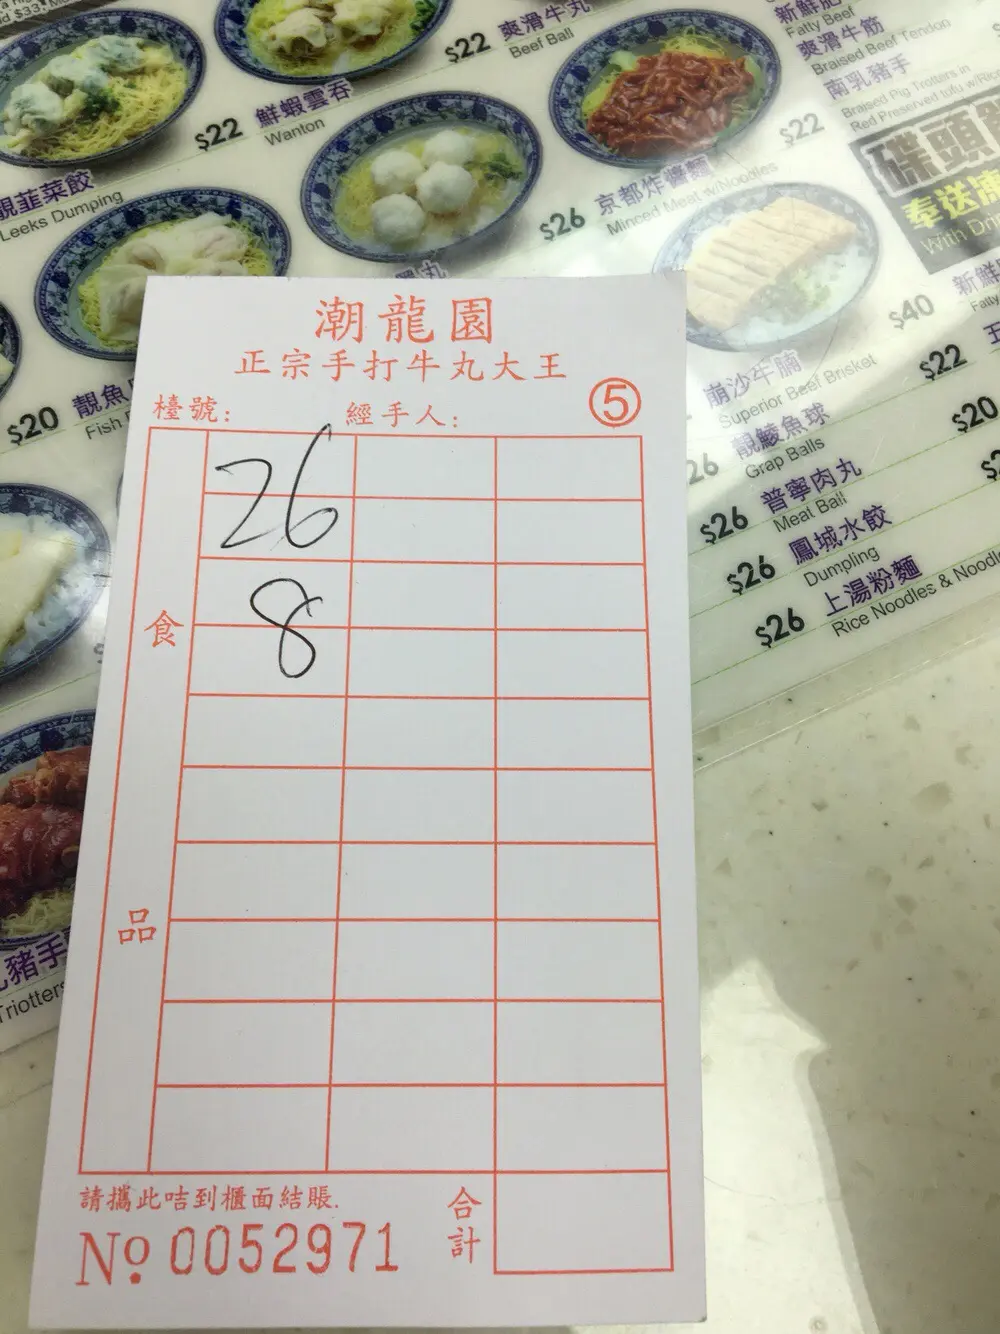 $22 爽滑牛丸
Beef Ball
新鮮
Fatty Beef
爽滑牛筋
Braised Beef Tendon
南乳豬手
Braised Pig Trotters in
Red Preserved tofu w/Rice
$22 鮮蝦雲吞
Wanton
$22
靚韮菜餃
Leeks Dumping
$26 京都炸醬麵
Minced Meat w/Noodles
碟頭
奉送凍
With Drin
$40 新鮮
Fatty
崩沙牛腩
Superior Beef Brisket
$22
$20 靚魚
Fish
26 靚鯪魚球
Grap Balls
$20
$26 普寧肉丸
Meat Ball
$26 鳳城水餃
Dumpling
$26 上湯粉麵
Rice Noodles & Noodle
豬手
Triotters
潮龍園
正宗手打牛丸大王
檯號: 經手人: ⑤
26
8
食品
請攜此咭到櫃面結賬.
合計
No. 0052971